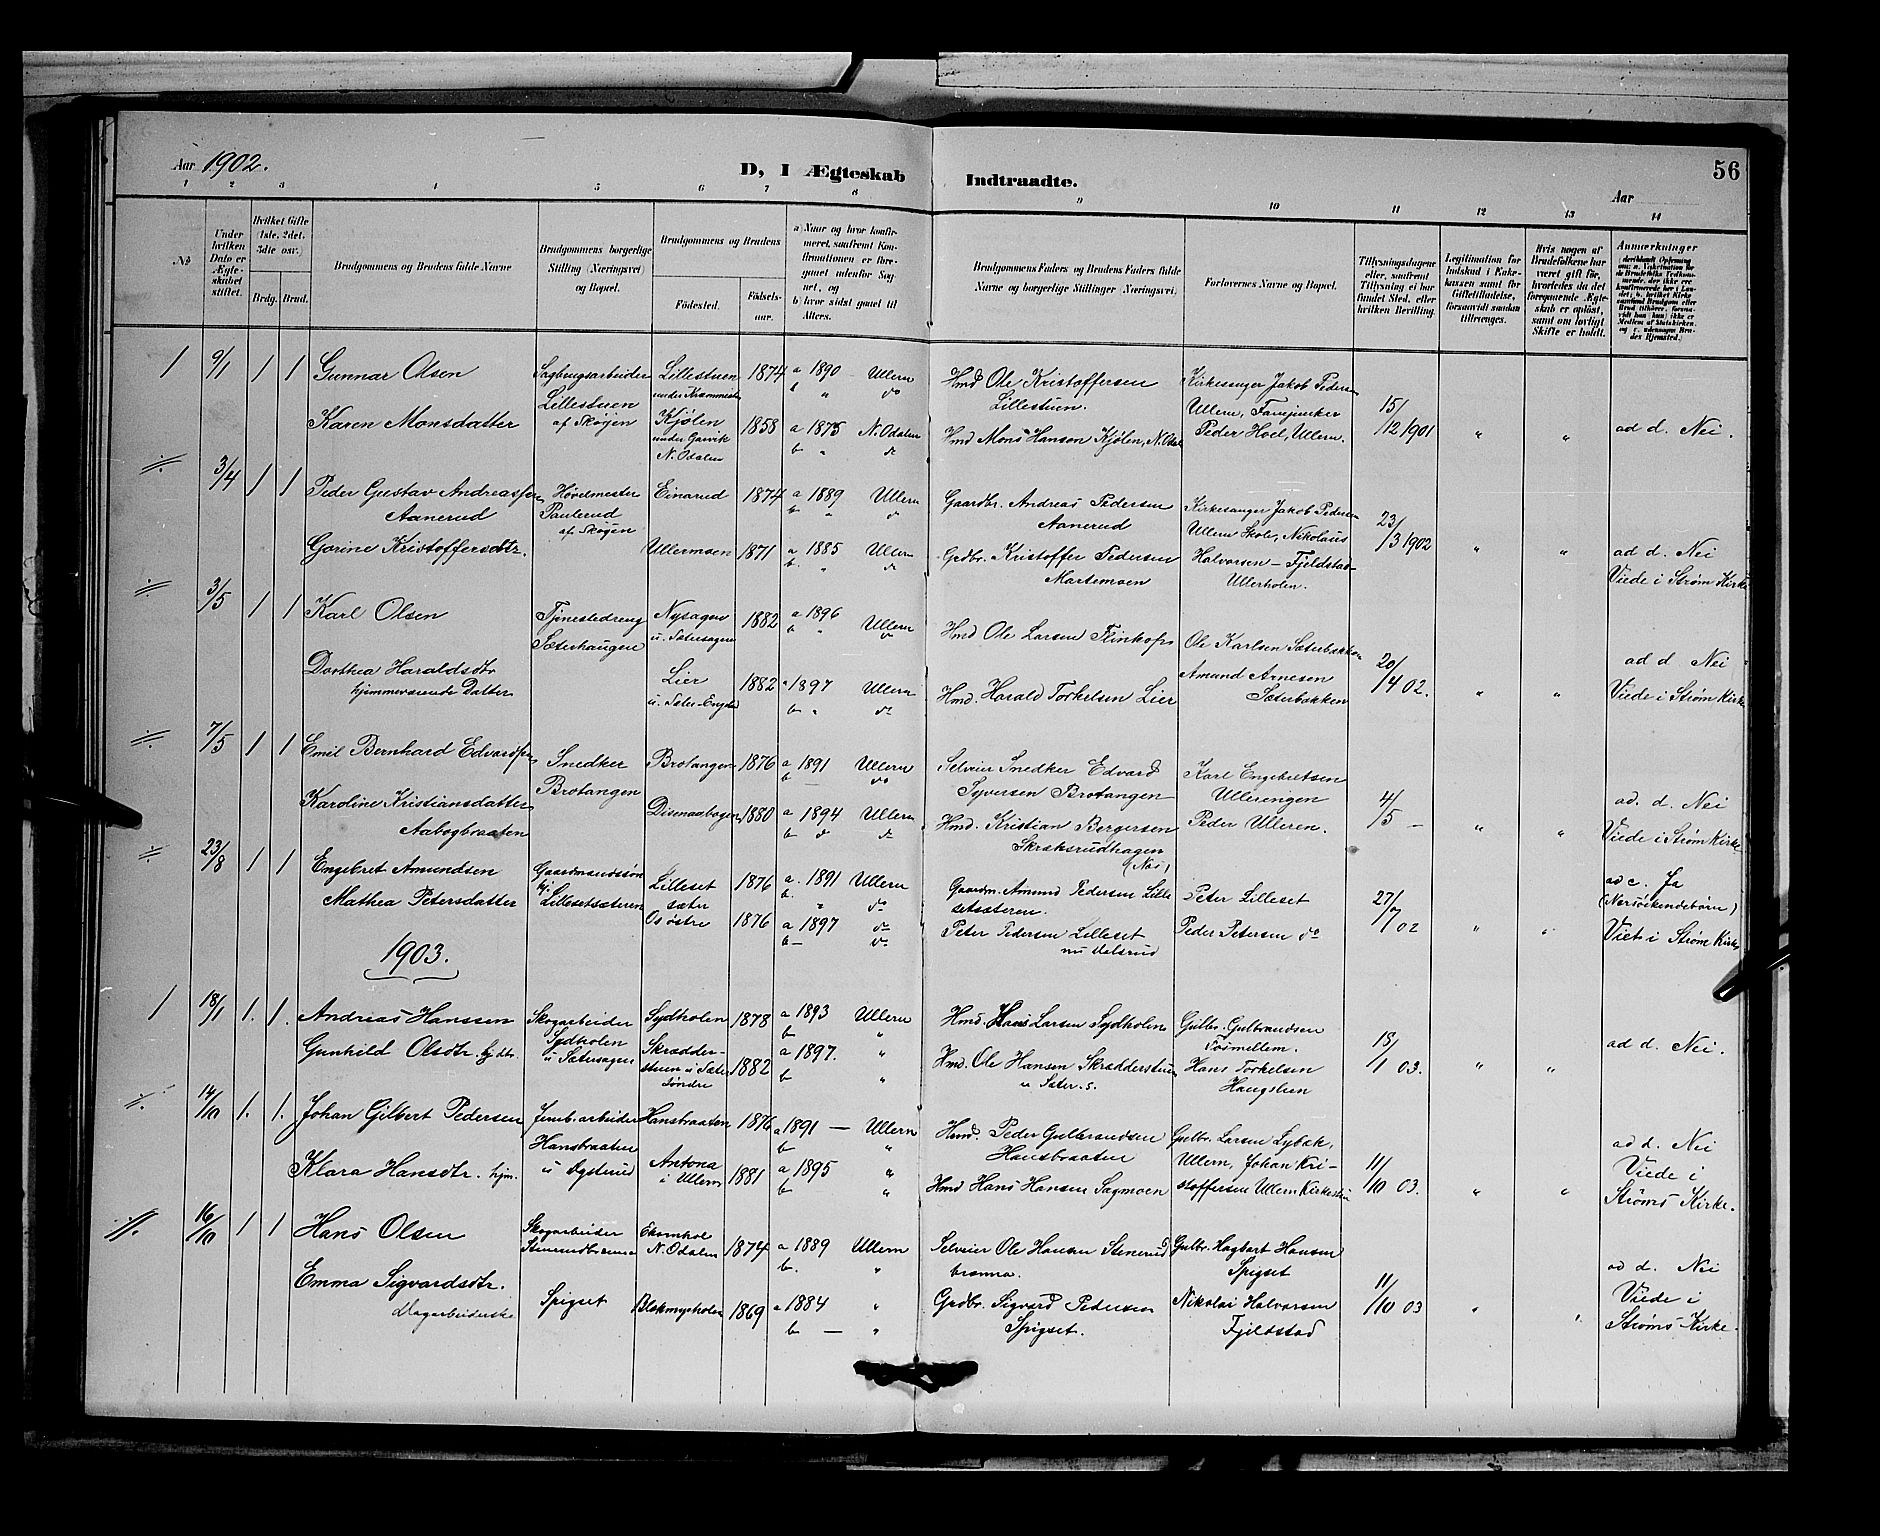 Aar 1902.
D, I Ægteskab Indtraadte.
56
Aar
1 2 3 4 5 6 7 8 9 10 11 12 13 14
№
Under hvilken Dato er Ægteskabet stiftet.
Hvilket Gifte 1ste, 2det, 3die osv.)
Brdg. Brud.
Brudgommens og Brudens fulde Navne
Brudgommens borgerlige Stilling (Næringsvei) og Bopæl.
Brudgommens og Brudens
Fødested.
Fødselsaar.
a) Naar og hvor konfirmeret, saafremt Konfirmationen er foregaaet udenfor Sognet, og
b) hvor sidst gaaet til Alters.
Brudgommens Faders og Brudens Faders fulde Navne og borgerlige Stillinger Næringsvei.
Forlovernes Navne og Bopæl.
Tillysningsdagene eller, saafremt Tillysning ei har fundet Sted, efter hvilken Bevilling.
Legitimation for Indskud i Enkekassen samt for Giftetilladelse, forsaavidt saadan tiltrænges.
Hvis nogen af Brudefolkene har været gift før, hvorledes da det foregaaende Ægteskab er opløst, samt om lovligt Skifte er holdt.
Anmærkninger
1 9/1 1 1 Gunnar Olsen Sagbrugsarbeider Lillestuen 1874 a 1890 - Ullern Hmd Ole Kristoffersen Kirkesanger Jakob Pedersen
Lillestuen b " do Lillestuen. Ullern, Fanejunker 15/12 1901
Karen Monsdatter af Skogen Kjølen under Garvik N. Odalen 1858 a 1875 N. Odalen Hmd Mons Hansen Kjølen, N. Odal Peder Hoel, Ullern. " " ad d. Nei.
b " do
3/4 1 1 Peder Gustav Andreassen Høvelmester Einarud 1874 a 1889 Ullern Gaardbr. Andreas Pedersen Kirkesanger Jakob Pedersen
Aanerud Paulerud af Skogen b " do Aanerud Ullern Skole, Nikolaus 23/3 1902
Gorine Kristoffersdtr. Ullermoen 1871 a 1885 Ullern Grdbr. Kristoffer Pedersen Halvorsen - Fjeldstad- " " ad d. Nei
b. " do Martemoen Ullerholen. Viede i Strøm Kirke
3/5 1 1 Karl Olsen Tjenestedreng Nysagen 1882 a 1896 Ullern Hmd Ole Larsen Ole Karlsen Sæterbakken
Sæterhaugen u. Sætersagen b " do
Dorthea Haraldsdtr Lier 1882 a 1897 Ullern Hmd. Harald Torkelsen Lier Amund Arnesen 20/4 02. " " ad d. Nei
hjemmeværende Datter b " do Sæterbakken Viede i Strøm Kirke
7/5 1 1 Emil Bernhard Edvardsen Snedker Brotangen 1876 a 1891 Ullern Selveier Snedker Edvard Karl Engebretsen
Brotangen b do Syversen Brotangen Ullerengen
Karoline Kristiansdatter Disenaabogen 1880 a 1894 Ullern Hmd. Kristian Bergersen Peder Ulleren. 4/5 - " " ad. d. Nei
Aabogbraaten b do do Skræksrudhagen Viede i Strøm Kirke
23/8 1 1 Engebret Amundsen Gaardmandssøn Lilleset 1876 a. 1891 Ullern Gaardm. Amund Pedersen Lille Peter Lilleset ad c. Ja
Lillesetsæteren sæter b. " do setsæteren. (Næssøskendebørn)
Mathea Petersdatter Os østre 1876 a 1897 do Peter Pedersen Lilleset Peder Petersen do 27/7 02 " " Viet i Strøm Kirke
b- do nu
1903.
1 18/1 1. 1. Andreas Hanssen Skogarbeider Sydholen 1878 a 1893 Ullern Hmd. Hans Larsen Sydholen Gulbr. Gulbrandsen
Sydholen b " Tosmellem.
Gunhild Olsdtr. hj. dtr. u Sætersagen Skrædderstuen u Sæter søndre 1882 a 1897. " Hmd. Ole Hansen Skrædderstuen Hans Torkelsen 18/1 03. " " ad d. Nei.
b " u Sæter. s. Haugslien
14/10 1. 1. Johan Gilbert Pedersen Jernb.arbeider Hansbraaten 1876 a 1891 - Ullern Hmd. Peder Gulbrandsen Gulbr. Larsen Lybæk,
Hansbraaten b " Hansbraaten Ullern, Johan Kri- ad d. Nei
Klara Hansdtr. hjm. u Antona i Ullern 1881 a 1895 " Hmd Hans Hansen Sagmoen stoffersen Ullern 11/10 03. " " Viede i
b " Strøms Kirke.
16/10 1 1 Hans Olsen Skogarbeider N. Odalen 1874 a 1889 Ullern Selveier Ole Hansen Stenerud Gulbr. Hagbart Hansen
b. " brænna. Spigset ad d. Nei
Emma Sigvardsdtr. Spigset Blekmyrholen 1869 a 1884 " Grdbr. Sigvard Pedersen Nikolai Halvorsen 11/10 03 " " Viede i
b - " Spigset. Fjeldstad Strøms Kirke.